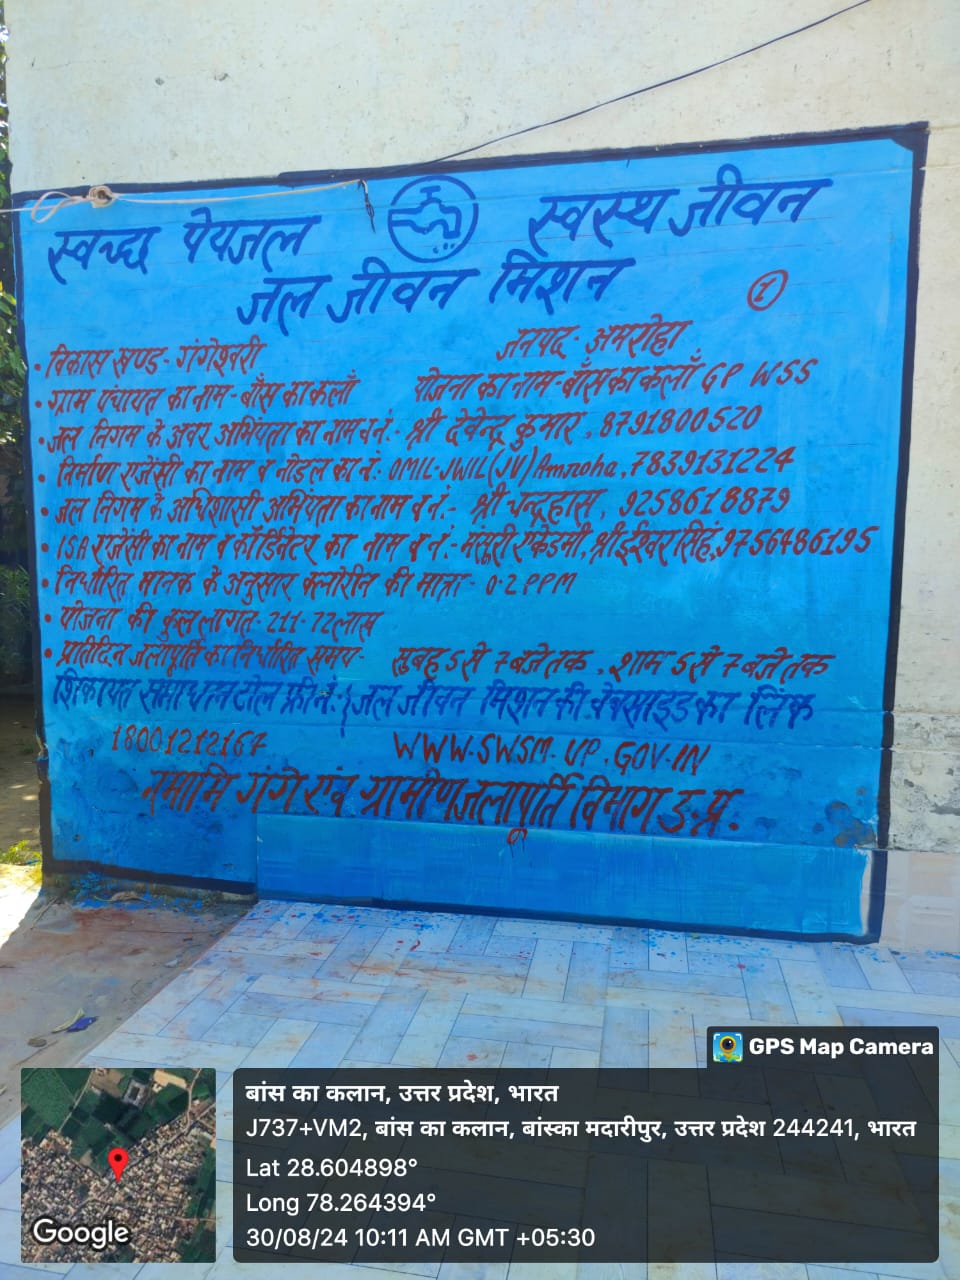 स्वच्छ पेयजल स्वस्थ जीवन
जल जीवन मिशन
1
• विकास खण्ड - गंगेश्वरी जनपद - अमरोहा
• ग्राम पंचायत का नाम - बाँस का कलाँ योजना का नाम - बाँस का कलाँ GP WSS
• जल निगम के अवर अभियंता का नाम व नं. - श्री देवेन्द्र कुमार, 8791800520
• निर्माण एजेंसी का नाम व नोडल का नं: OMIL-JWIL(JV) Amroha, 7839131224
• जल निगम के अधिशासी अभियंता का नाम व नं. - श्री चन्द्रहास, 9258618879
• ISA एजेंसी का नाम व कॉर्डिनेटर का नाम व नं. - मंसूरी एकेडमी, श्री ईश्वर सिंह, 9756486195
• निर्धारित मानक के अनुसार क्लोरीन की मात्रा - 0.2 PPM
• योजना की कुल लागत - 211.72 लाख
• प्रतिदिन जलापूर्ति का निर्धारित समय - सुबह 5 से 7 बजे तक, शाम 5 से 7 बजे तक
शिकायत समाधान टोल फ्री नं: जल जीवन मिशन की वेबसाइड का लिंक
18001212164 WWW.SWSM.UP.GOV.IN
नमामि गंगे एंव ग्रामीण जलापूर्ति विभाग उ.प्र.
GPS Map Camera
बांस का कलान, उत्तर प्रदेश, भारत
J737+VM2, बांस का कलान, बांस्का मदारीपुर, उत्तर प्रदेश 244241, भारत
Lat 28.604898°
Long 78.264394°
30/08/24 10:11 AM GMT +05:30
Google